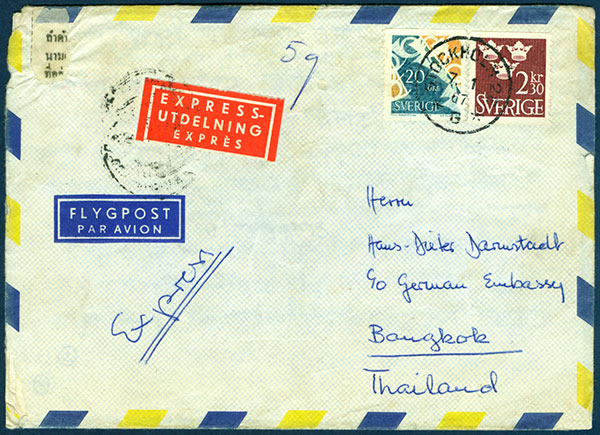 ถ้าคำ
นามผ
ที่อยู่
5 g
EXPRESS-
UTDELNING
EXPRÈS
20
SVERIGE
2 kr
30
SVERIGE
STOCKHOLM
FLYGPOST
PAR AVION
Herrn
Hans-Dieter Darmstadt
c/o German Embassy
Bangkok
Thailand